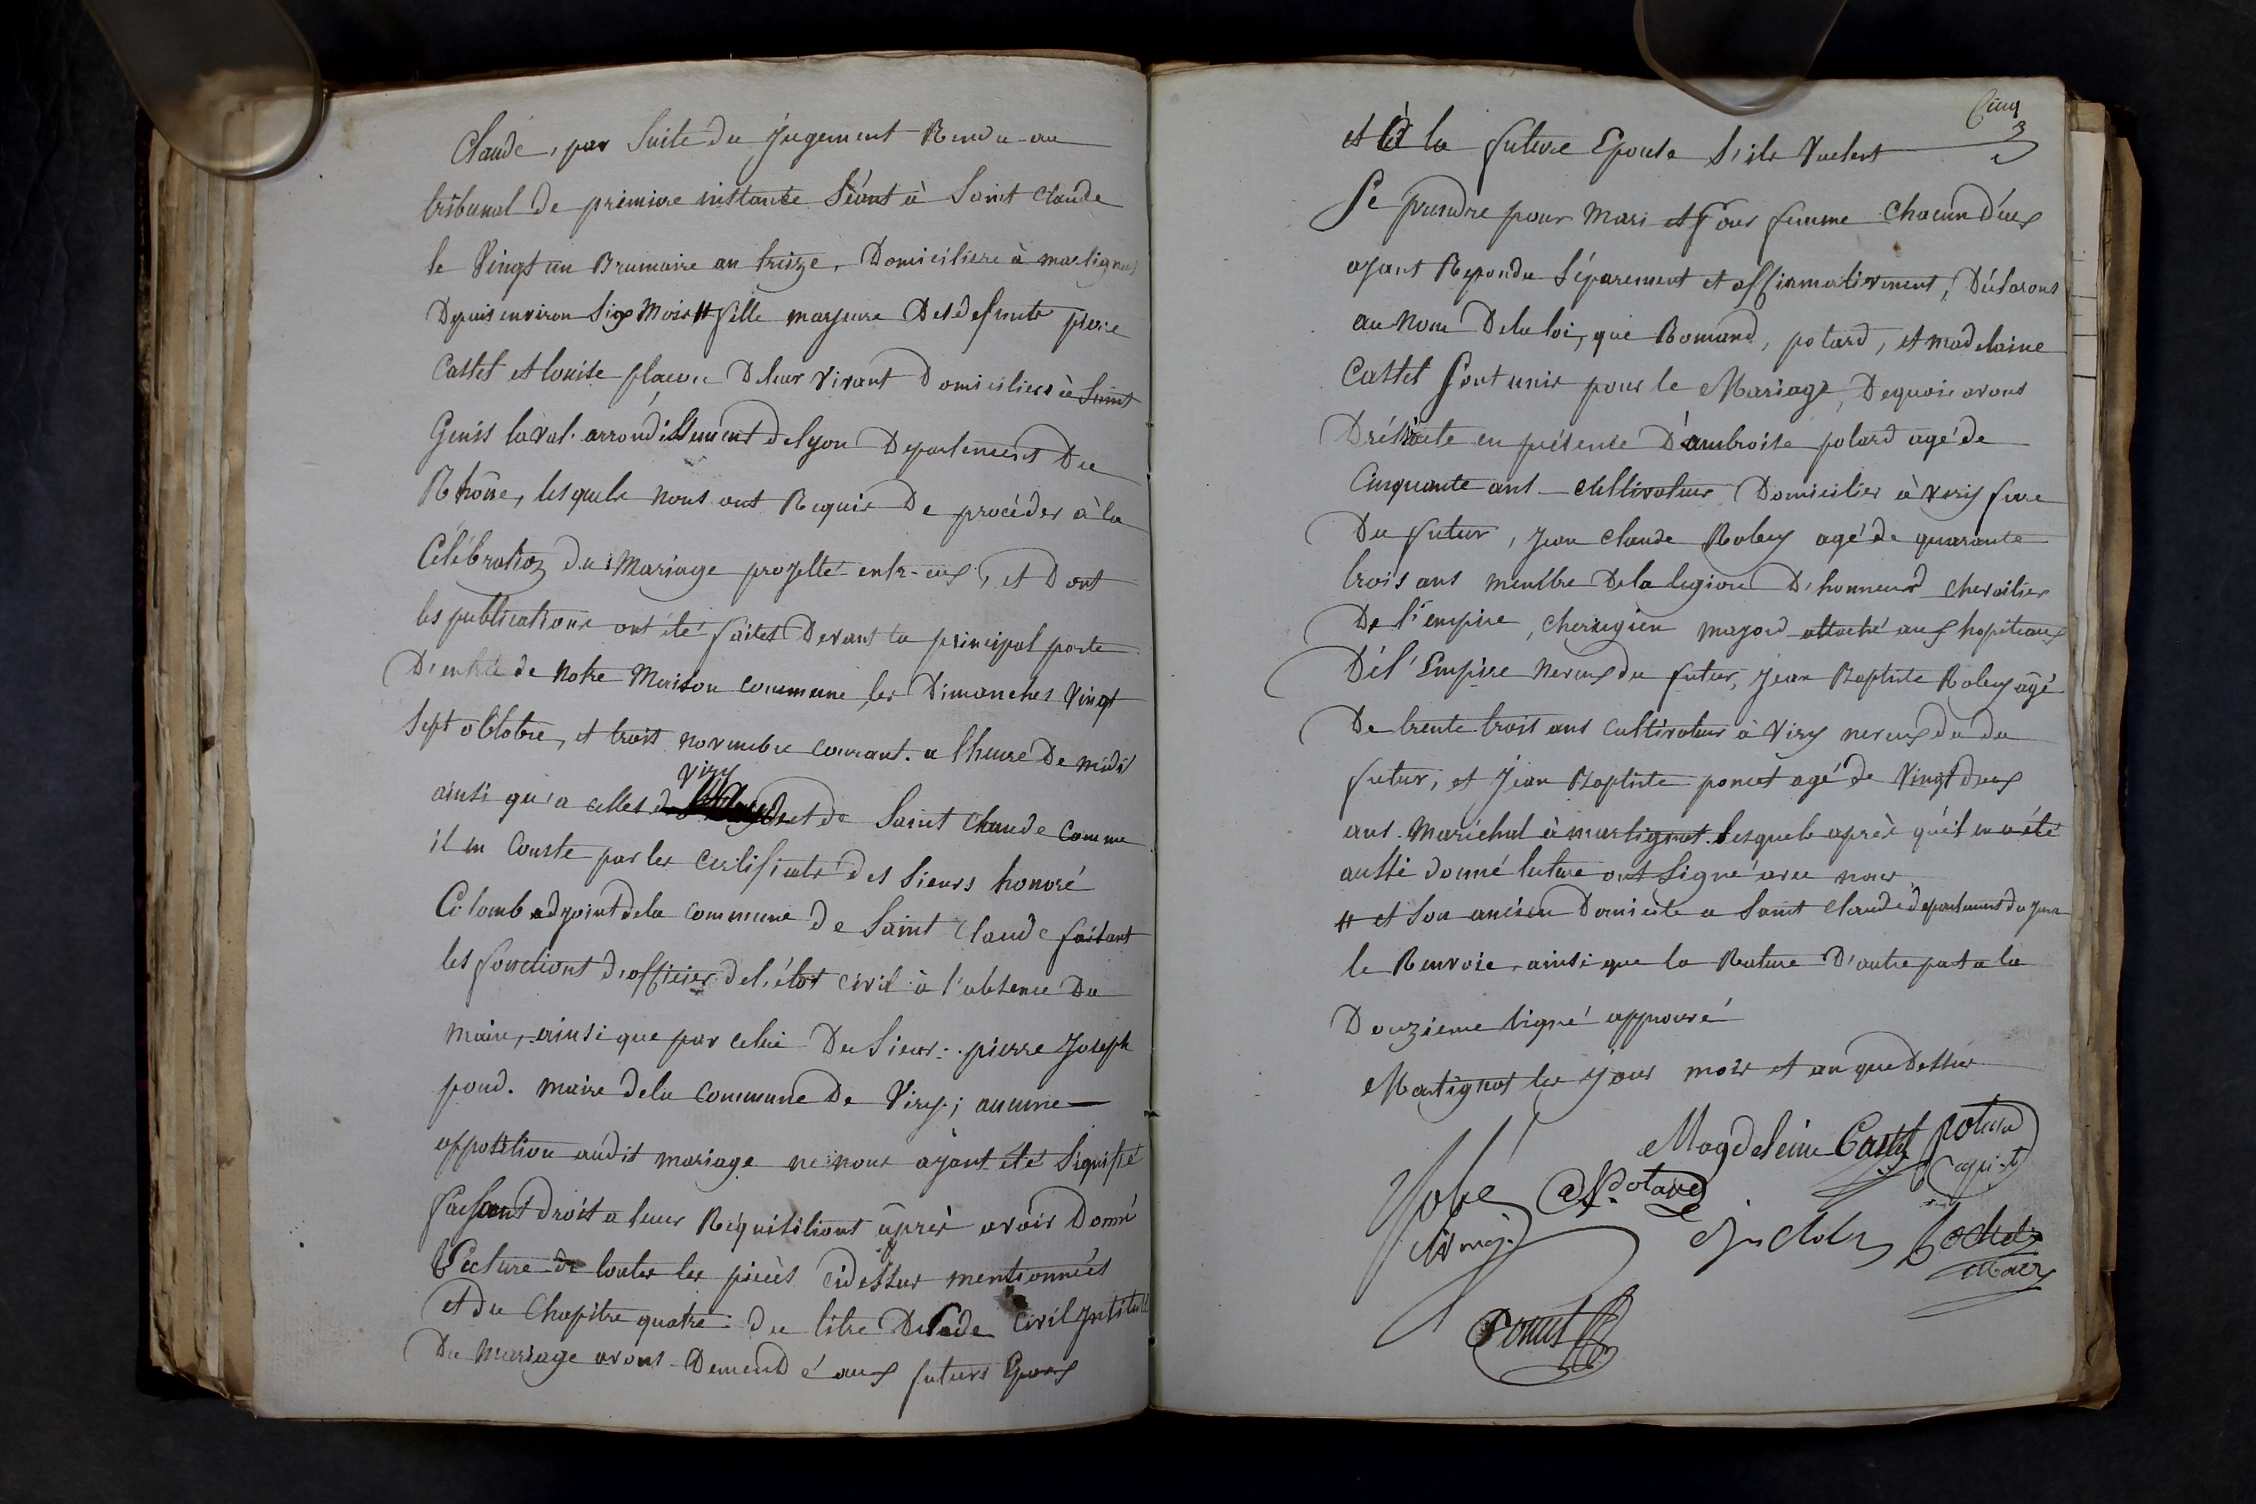 Claude, par Suite du Jugement Rendu au
tribunal De premiere instance Séant à Saint Claude
le Vingt un Brumaire an treize, Domiciliere à martignat
Depuis environ Six Mois # fille majeure Des defunts pierre
Castel et louise De leur vivant Domiciliers à Saint
Geniss laval arrondissement De lyon Departement Du
Rhône, lesquels nous ont Requis De procéder à la
Célébration du Mariage projetté entr-eux, et Dont
les publications ont été faites Devant la principal porte
D'entrée de Notre Maison commune les Dimanches Vingt
Sept octobre, et trois novembre courant. a l'heure De midi
ainsi qu'a celles de Viry et de Saint Claude Comme
il en Conste par les Certificats des Sieurs honoré
Colomb adjoint de la commune de Saint Claude faisant
les fonctions d'officier de l'état civil à l'absence Du
maire, ainsi que par celui Du Sieur pierre Joseph
pond. maire de la commune De Viry; aucune
opposition audit mariage ne nous ayant été Signifié
faisant droit a leur Réquisitions après avoir Donné
Lecture de toutes les pièces cidessus mentionnées
et du Chapitre quatre du titre Du Code Civil Intitulé
Du Mariage avons Demendé aux futurs Epoux
Cinq
3
et à la future Epouse S'ils Veulent
Se prendre pour Mari et Pour femme Chacun D'eux
ayant Repondu Séparement et affirmativement, Déclarons
au Nom De la loi, que Romand, potard, et madelaine
Castel Sont unis pour le Mariage, De quoi avons
Dréssé acte en présence D'ambroise potard agé de
Cinquante ans cultivateur Domicilier à Viry frere
Du futur, Jean Claude Robey agé de quarante
trois ans membre De la legion D'honneur chevailier
De l'empire, cherugien major attaché aux hopiteaux
De l'Empire neveux du futur, Jean Baptiste Robey agé
De trente trois ans cultivateur à Viry neveux du du
futur, et Jean Baptiste poncet agé de Vingt deux
ans. Maréchal à martignat. lesquels après qu'il en a été
aussi donné lecture ont Signé avec nous
# et Son ancien Domicile a Saint Claude departement du Jura
le Renvoie, ainsi que la Rature D'autre part a la
Douzieme ligne approuvé
Martignat les Jour mois et an que Dessus
Magdeleine Castel potard
Robé A. Potard
Poncet